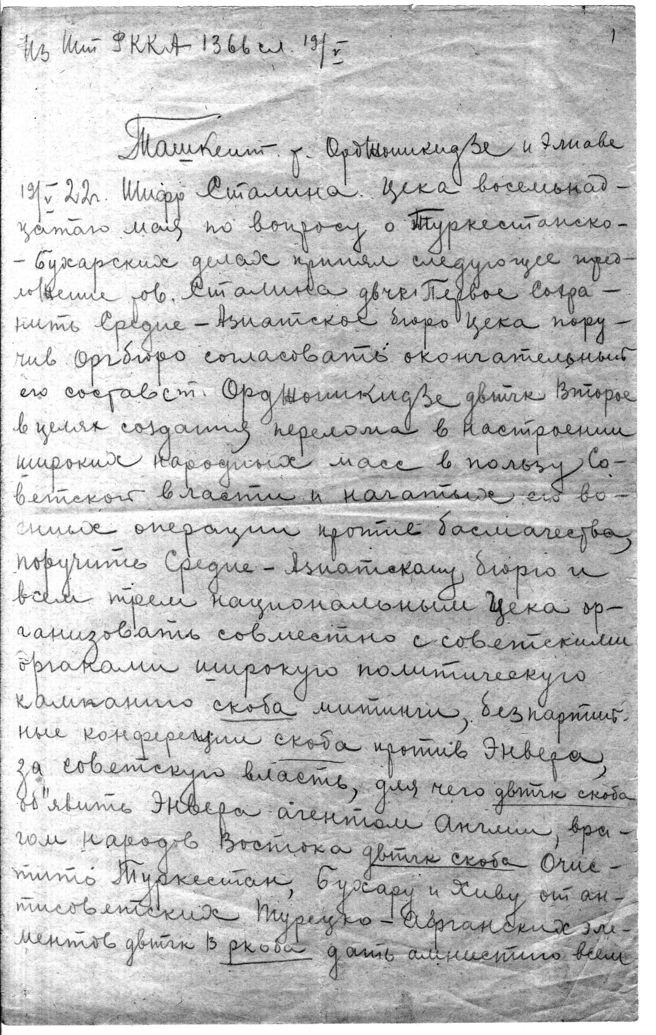 Из Шт РККА 1366 сл. 19/V
1
Ташкент. т. Орджоникидзе и Элиаве
19/V 22г. Шифр Сталина. Цека восемьнад-
цатаго мая по вопросу о Туркестанско-
-Бухарских делах принял следующее пред-
ложение тов. Сталина двтчк Первое Сохра-
нить Средне-Азиатское бюро Цека пору-
чив Оргбюро согласовать окончательный
его состав с т. Орджоникидзе двтчк Второе
в целях создания перелома в настроении
широких народных масс в пользу Со-
ветской власти и начатых ею во-
енных операции против басмачества,
поручить Средне-Азиатскому бюро и
всем трем национальным Цека ор-
ганизовать совместно с советскими
органами широкую политическую
кампанию скоба митинги, безпартий-
ные конференции скоба против Энвера,
за советскую власть, для чего двтчк скоба
об"явить Энвера агентом Англии, вра-
гом народов Востока двтчк скоба Очис-
тить Туркестан, Бухару и Хиву от ан-
тисоветских Турецко-Афганских эле-
ментов двтчк В скоба дать амнистию всем